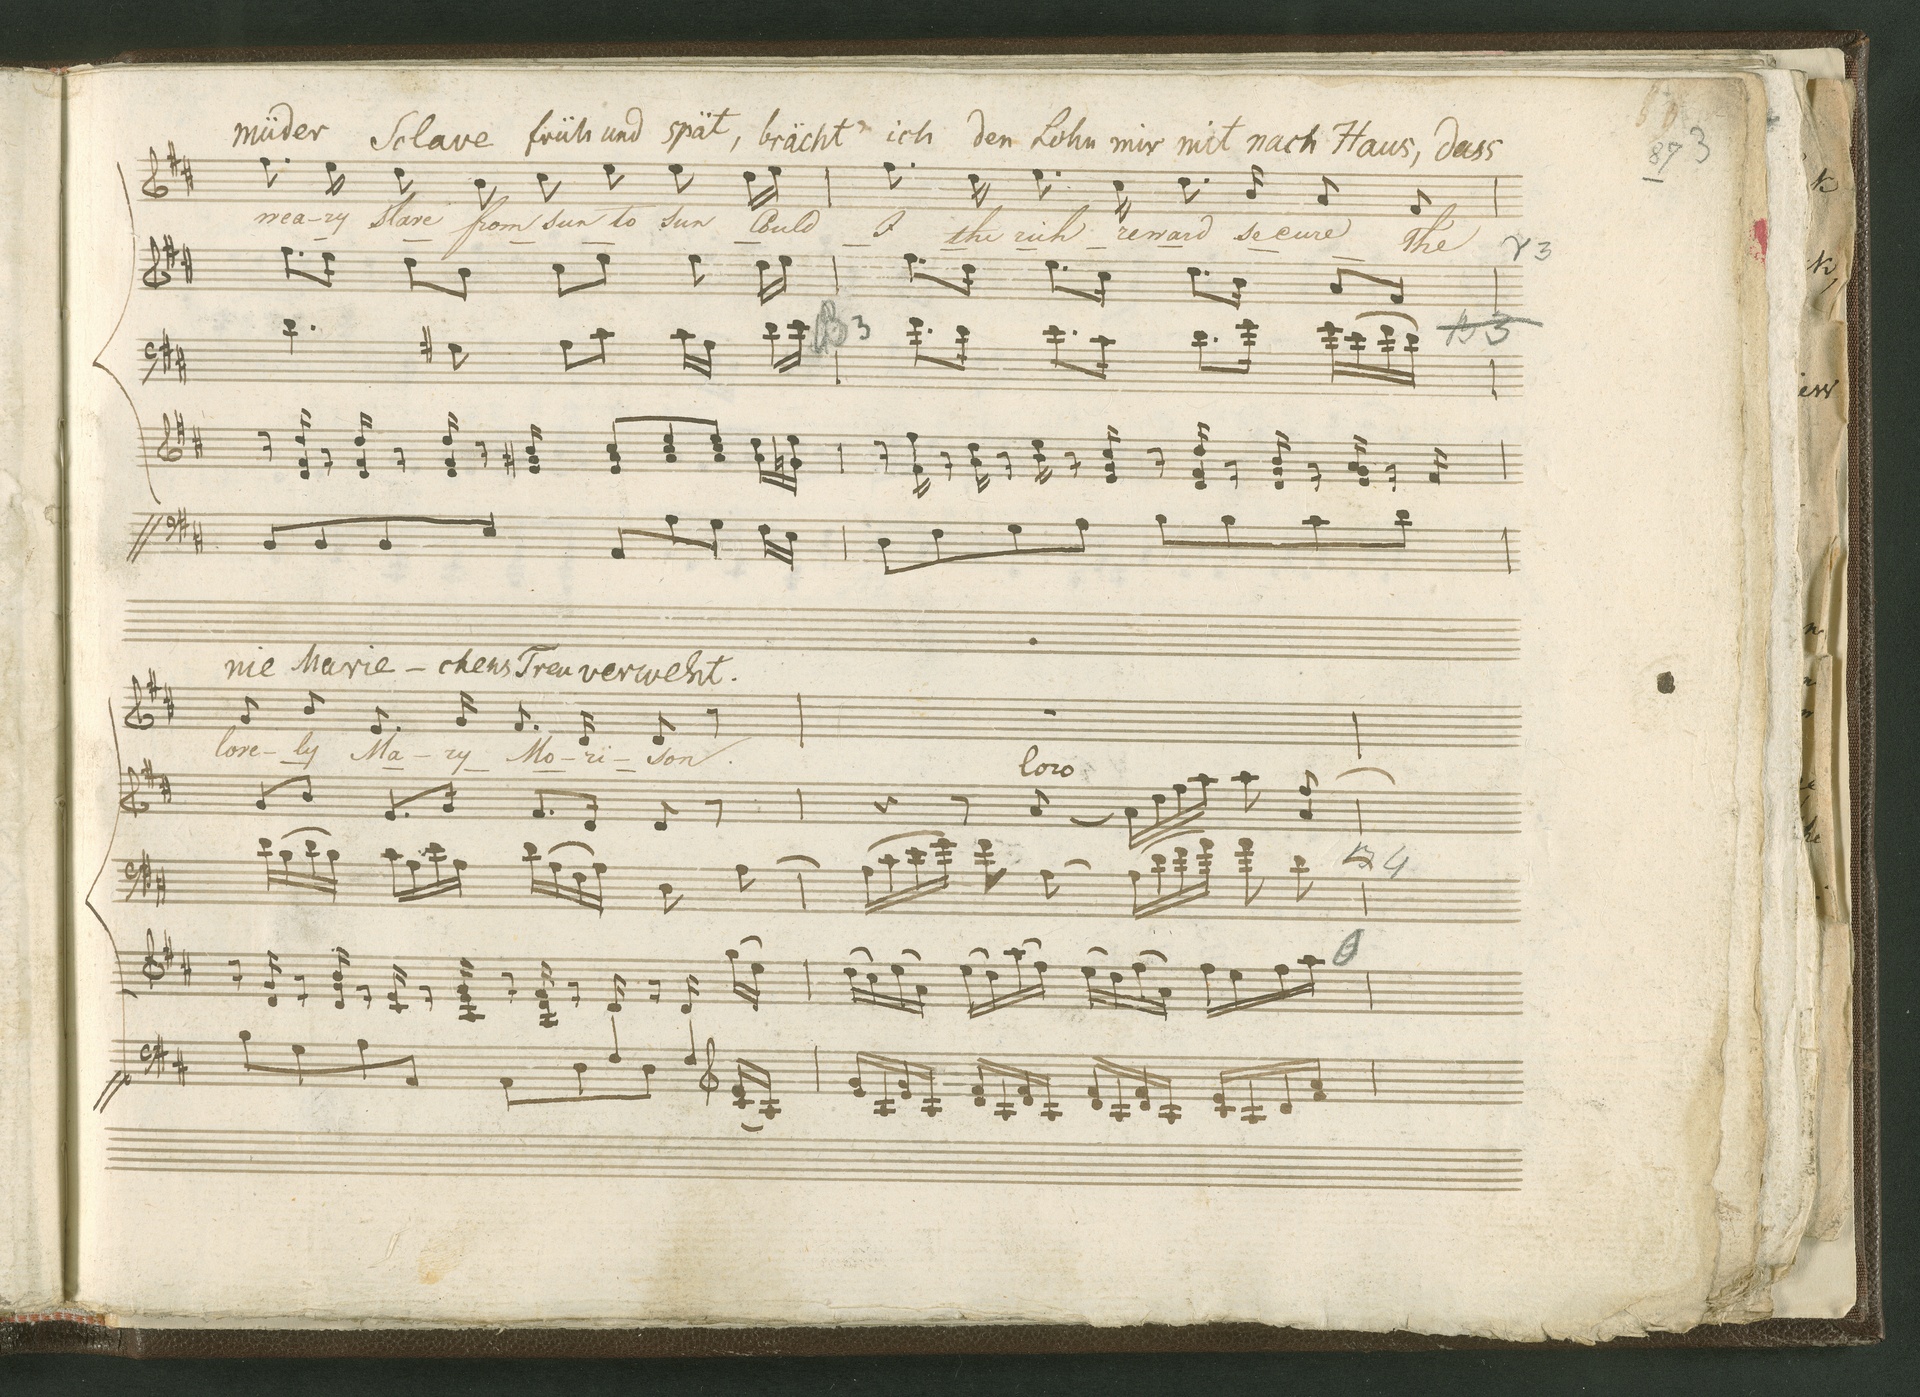 müder Sclave früh und spät, brächt' ich den Lohn mir mit nach Haus, dass
873
wea-ry slave from sun to sun Could I the rich reward secure The
γ3
B3
B3
nie Marie - chens Treu verweht.
love- ly Ma - ry Mo - ri - son.
loco
4